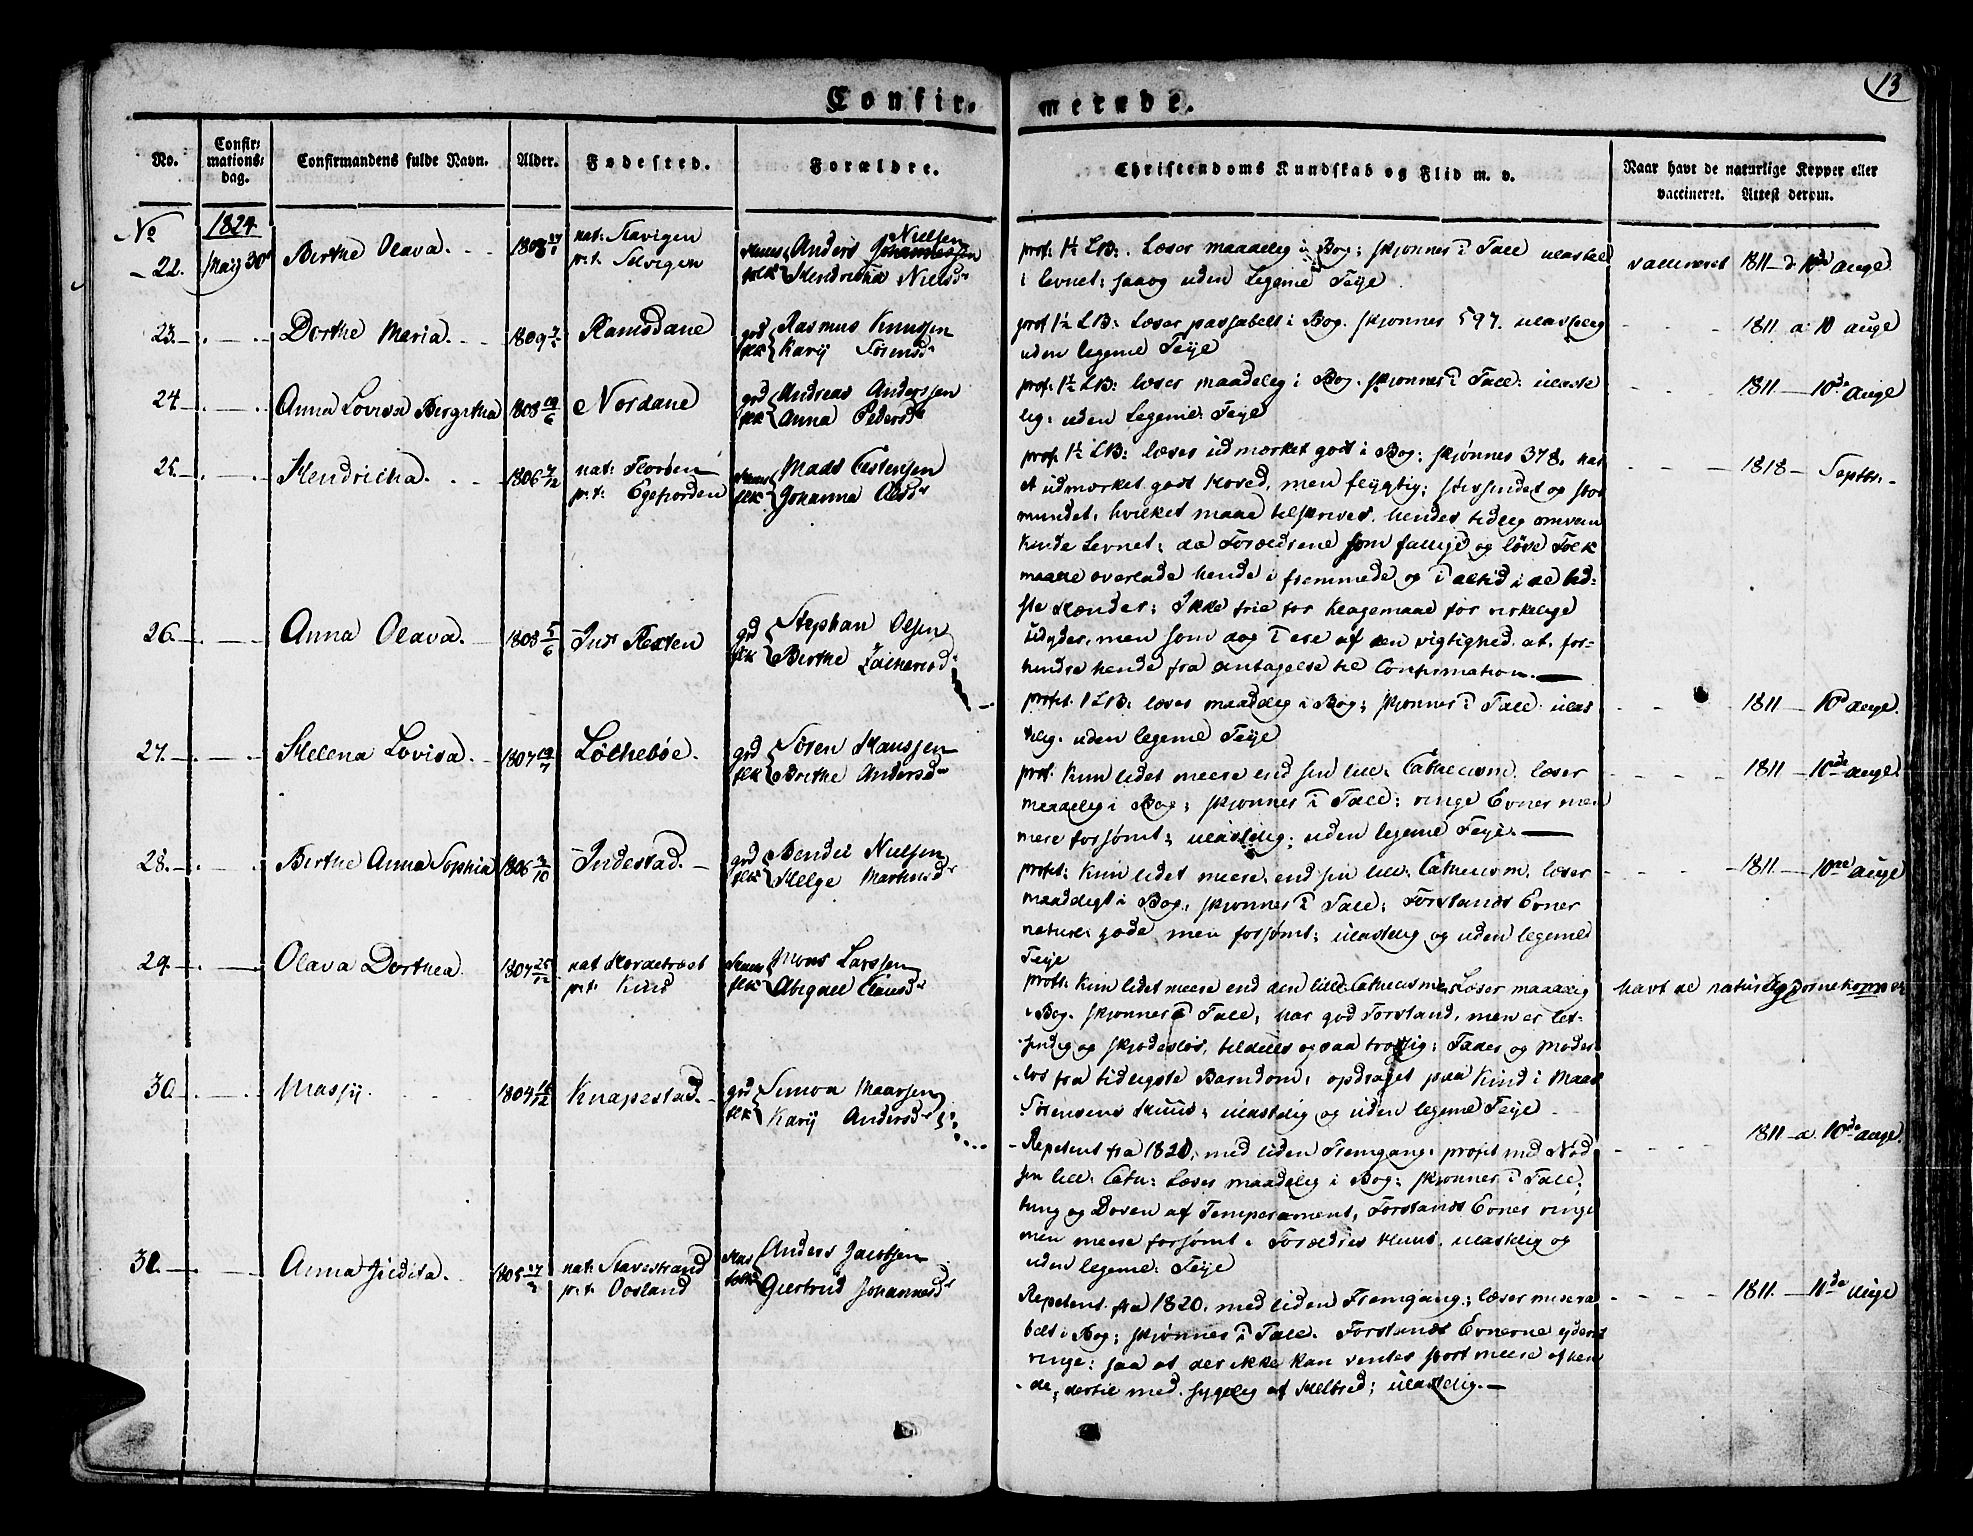 13
Confir- merede.
No.
Confir-
mations-
dag.
Confirmandens fulde Navn.
Alder.
Fødested.
Forældre.
Christendoms Kundskab og Flid m. v.
Naar havt de naturlige Kopper eller
vaccineret. Attest derom.
No 1824
22. Maij 30 Birthe Olava. 1808
nat: Stavigen
p.t. Selvigen
Anders Johannessen Nielsen
Hendricha Nielsd
prof. 1½ LB:. Læser maadelig i Bog; skjønner i Tale ulastel
i levnet; saaog uden Legeme Feije.
vaccineret 1811 d 10de Augl
23. Dorthe Maria. 1809 Ramsdane
grd Rasmus Knussen
flk Karij Sørensd
prof 1½ LB: Læser passabelt i Bog. skjønner 597. ulastelig
uden legeme Feije
1811 a 10 Augl
24 Anna Lovisa Bergitha 1808 19/6 Nordane
grd Andreas Anderssen
flk Anna Pedersd
prof. 1½ LB: læser maadelig i Bog. skjønner i Tale: ulaste
lig: uden Legeme Feije
1811 10de Augl
25. Hendricha. 1806
nat: Florøen
p.t. Egefiorden
Huus Mads Testensen
flk Johanna Olsd
prof. 1½ LB: læser udmærket godt i Bog; skjønner 378. har
et udmærket godt Hoved, men flygtig; stifsindet og stor
mundet, hvilket maae tilskrives hendes tidlig omvan
kende Levnet; da Forældrene som fattige og løse Folk
maae overlade hende i fremmede, og i altid i de bed-
ste Hænder; Ikke frie for Klagemaal for virkelige
Udyder, men som dog i ere af den vigtighed at for-
hindre hende fra antagelse til Confirmation.
1818 Septbr.
26. Anna Olava. 1808 5/6 Indr Rexten
grd Stephan Olsen
flk Birthe Zachariæd
profet. 1 LB: læser maadelig i Bog; skjønner i Tale ulas
telig. uden legeme Feije
1811 10de Augl.
27. Helena Lovisa. 1807 19/7 Løchebøe.
grd Søren Hanssen
flk Brithe Andersd
prof. Kun lidet meere end sin lill. Cathecism. læser
maadelig i Bog; skjønner i Tale; ringe Evner men
mere forsømt; ulastelig; uden legeme Feije.
1811 10de Augl.
28. Birthe Anna Sophia 1806 3/10 Indestad.
grd Bendix Nielsen
flk Helge Marhusd
profet: Kun lidet meere end sin lill. Cathecism. læser
maadeligt i Bog. skjønner i Tale; Forstands Evner
nature: gode men forsømt; ulastelig og uden legemed
Feije
1811. 10ne Augl
29. Olava Dorthea. 1807 25/12
nat Hordetræet
p.t. Kind
Huus Mons Larssen
flk Abigael Clausd
profet: Kun lidet meere end den lille Cathecismus. Læser maadelig
i Bog. skjønner i Tale; har god Forstand, men er let-
sindig og skjødesløs, tildeels ogsaa trodsig; Fader og Moder
løs fra tidligste Barndom; opdraget paa Kind i Mads
Sørensens Huus; ulastelig og uden legeme Feije
havt de naturlige
30. Massij. 1804 16/12 Knapestad.
grd Simon Maarsen
flk Karij Andersd
Repetent fra 1820, med liden Fremgang. profet med Nød
sin lill. Cath: Læser maadelig i Bog; skjønner i Tale;
tung og Doven af Temperament; Forstands Evner ringe
men meere forsømt i Forældres Huus. ulastelig og
uden legeme Feije
1811 a 10de Augl.
31. Anna Judita. 1805
nat: Stavestrand
p.t. Oosland
Huus Anders Jacobsen
folk Giertrud Johannesd
Repetent fra 1820. med liden Fremgang; læser misera
belt i Bog; skjønner i Tale. Forstands Evnerne yderst
ringe; saa at der ikke kan ventes stort meere af hen
de; dertil med sygelig af Helbred; ulastelig.
1811. 10de Augl